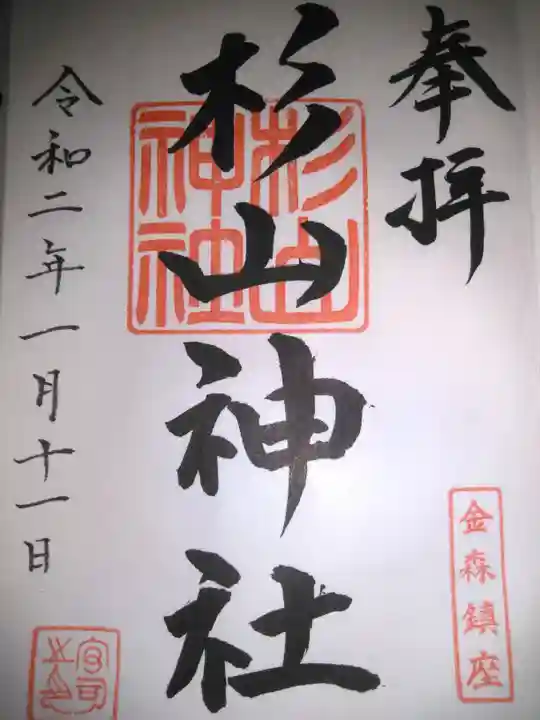 奉拝
金森鎮座
杉山神社
杉山神社
令和二年一月十一日
宮司之印